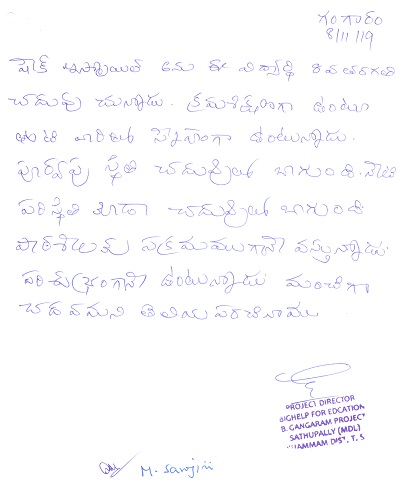 గంగారం
8/11/19
షేక్ ఇస్మాయిల్ అను ఈ విద్యార్థి 8వ తరగతి
చదువు చున్నాడు. క్రమశిక్షణగా ఉంటూ
తోటి వారితో స్నేహంగా ఉంటున్నాడు.
పూర్వపు స్థితి చదువులో బాగుంది. నేటి
పరిస్థితి కూడా చదువులో బాగుంది
పాఠశాలకు సక్రమముగానే వస్తున్నాడు.
పరిశుభ్రంగానే ఉంటున్నాడు మంచిగా
చదవమని తెలియపరచినాము
PROJECT DIRECTOR
BIGHELP FOR EDCATION
B. GANGARAM PROJECT
SATHUPALLY (MDL)
KHAMMAM DIST. T. S
M. Sarojini